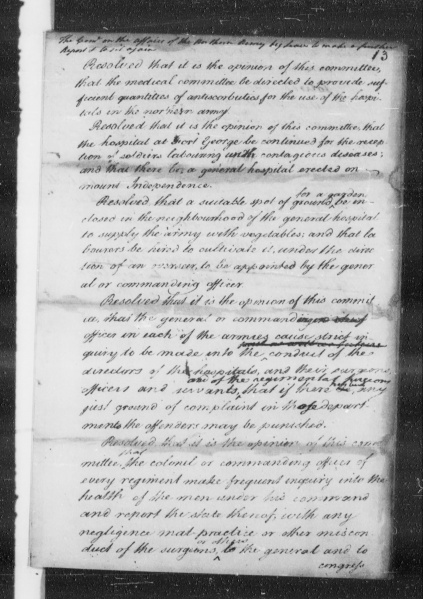 The Com. on the affairs of the Northern Army beg leave to make a further
Report & to sit again
13
Resolved that it is the opinion of this committee,
that the medical committee be directed to provide suf
ficient quantities of antiscorbutics for the use of the hospi
tals in the northern army
Resolved that it is the opinion of this committee, that
the hospital at Fort George be continued for the recep
tion of soldiers labouring under contagious diseases;
and that there be a general hospital erected on
mount Independence.
Resolved that a suitable spot of ground for a garden be in
closed in the neighbourhood of the general hospital
to supply the army with vegetables; and that la
bourers be hired to cultivate it, under the direc
tion of an overseer, to be appointed by the gener
al or commanding officer.
Resolved that it is the opinion of this committ
ee, that the general or commanding
officer in each of the armies cause strict in
quiry to be made into the conduct of the
directors of the hospitals, and their surgeons,
and of the regimental surgeons
officers and servants, that if there any
just ground of complaint in those depart
ments the offenders may be punished.
Resolved that it is the opinion of this com
mittee, that the colonel or commanding officer of
every regiment make frequent enquiry into the
health of the men under his command
and report the state thereof, with any
negligence mal practice or other miscon
duct of the surgeons, or others to the general and to
congress